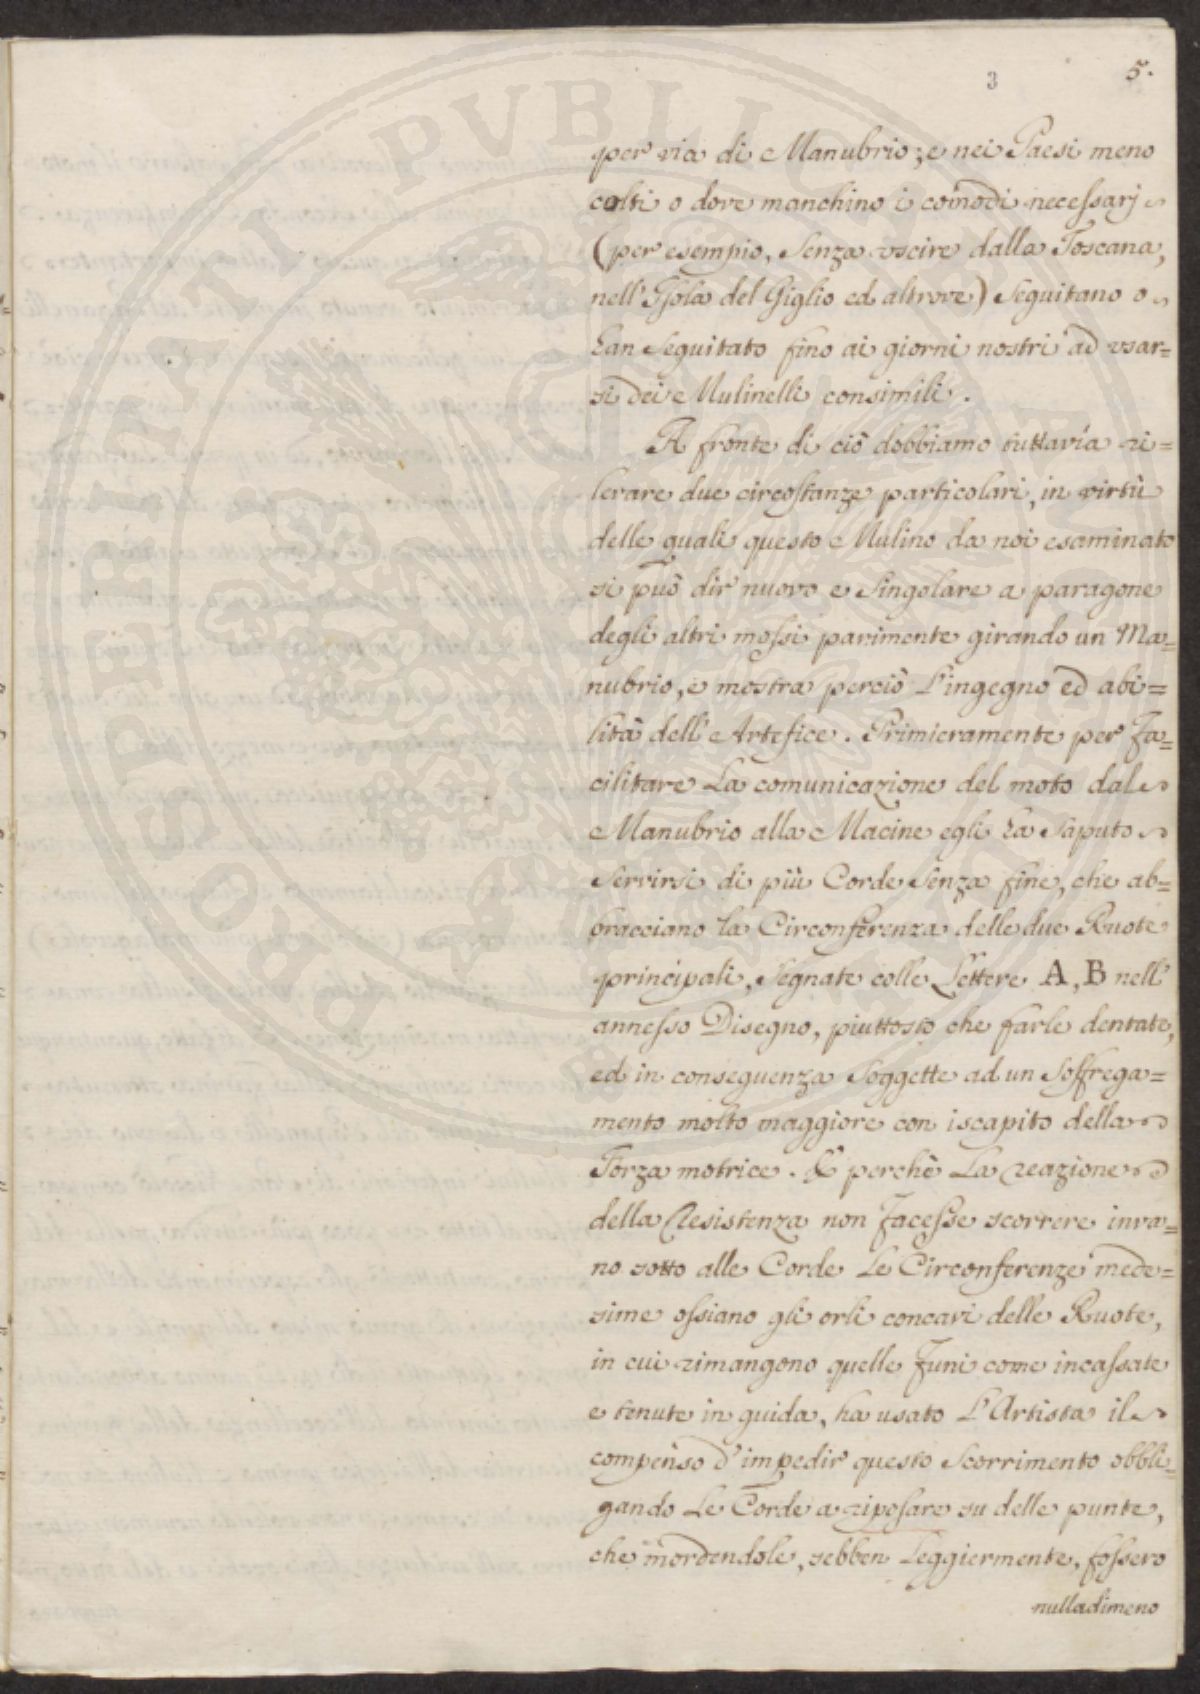 3
5.
per via di Manubrio; e nei Paesi meno
colti o dove manchino i comodi necessarj
(per esempio, senza uscire dalla Toscana,
nell'Isola del Giglio ed altrove) seguitano o
han seguitato fino ai giorni nostri ad usar=
si dei Mulinelli consimili.
A fronte di ciò dobbiamo tuttavía ri=
levare due circostanze particolari, in virtù
delle quali questo Mulino da noi esaminato
si può dir nuovo e singolare a paragone
degli altri mossi parimente girando un Ma=
nubrio, e mostra perciò l'ingegno ed abi=
lità dell'Artefice. Primieramente per fa=
cilitare la comunicazione del moto dal
Manubrio alla Macine egli ha saputo
servirsi di più Corde senza fine, che ab=
bracciano la Circonferenza delle due Ruote
principali, segnate colle Lettere A, B nell'
annesso Disegno, piuttosto che farle dentate,
ed in conseguenza soggette ad un soffrega=
mento molto maggiore con iscapito della
Forza motrice. E perchè la reazione
della Resistenza non facesse scorrere inva=
no sotto alle Corde le Circonferenze mede=
sime ossiano gli orli concavi delle Ruote,
in cui rimangono quelle Funi come incassate
e tenute in guida, ha usato l'Artista il
compenso d'impedir questo scorrimento obbli=
gando le Corde a riposare su delle punte,
che mordendole, sebben leggiermente, fossero
nulladimeno
PROSPERITATI PUBLICAE